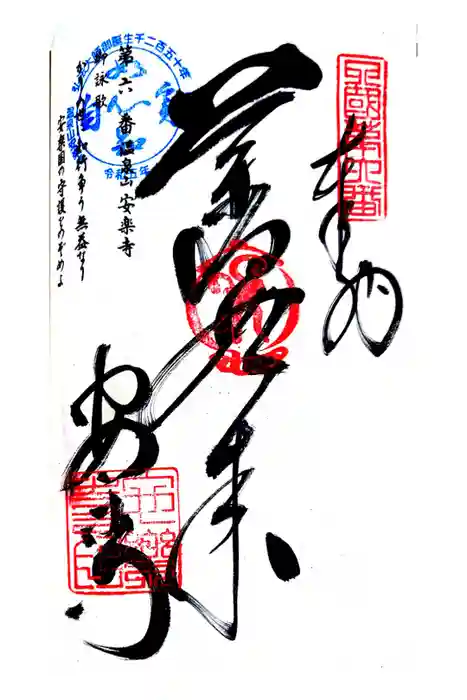 四國第六番
奉納
薬師如来
安楽寺
弘法大師御誕生千二百五十年
令和五年
第六番 温泉山 安楽寺
御詠歌
かりの世に知行争う無益なり
安楽国の守護をのぞめよ